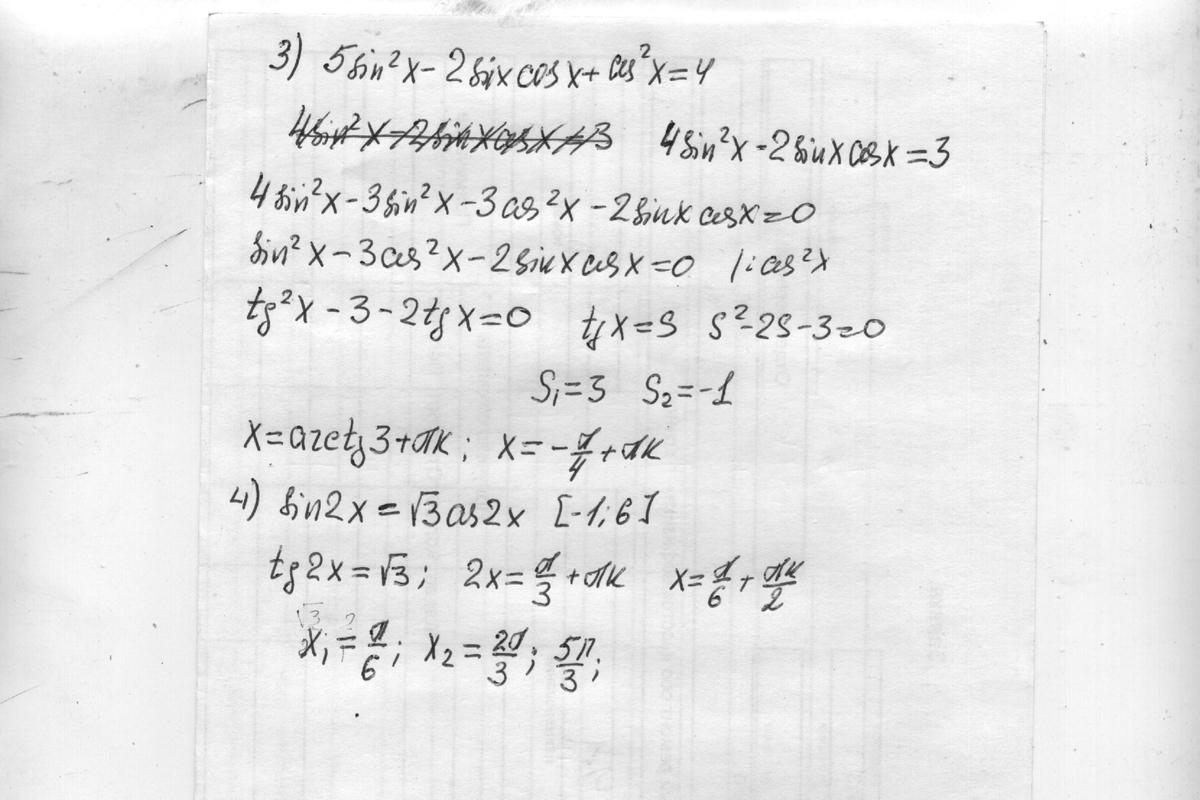 3) 5sin²x - 2sinx cosx + cos²x = 4
4sin²x - 2sinxcosx = 3 4sin²x - 2sinxcosx = 3
4sin²x - 3sin²x - 3cos²x - 2sinx cosx = 0
sin²x - 3cos²x - 2sinxcosx = 0 |: cos²x
tg²x - 3 - 2tgx = 0 tgx = S S² - 2S - 3 = 0
S₁ = 3 S₂ = -1
x = arctg3 + πk; x = -π/4 + πk
4) sin2x = √3cos2x [-1; 6]
tg2x = √3; 2x = π/3 + πk x = π/6 + πk/2
x₁ = π/6; x₂ = 2π/3; 5π/3;